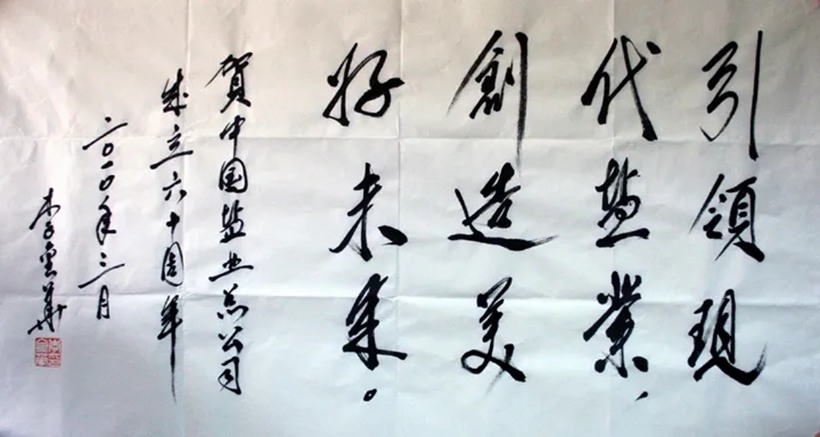 引領現
代盐業，
創造美
好未来。
賀中国盐业总公司
成立六十周年
二〇一〇年三月
李金華